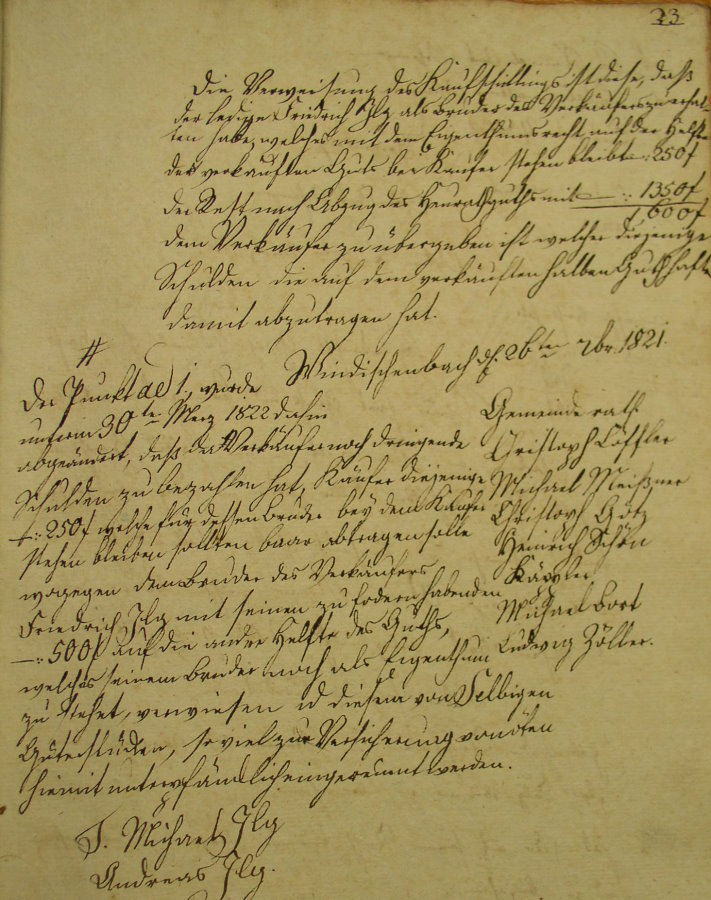 23
Die Verweisung des Kaufschillings ist diese, daß
der ledige Friedrich Ilg als Bruder des Verkäufers zu erhal-
ten habe, welches mit dem Eigenthumsrecht auf der Helfte
des verkauften Guts bei Käufer stehen bleibt -:250f
Der Rest nach Abzug des Heurathguths mit -:: 1350f
1,600f
dem Verkäufer zu übergeben ist welcher diejenige
Schulden die auf dem verkäuften halben Gut haften
damit abzutragen hat.
Windischenbach d. 26ten 9br. 1821.
#
Der Punkt ad 1. wurde
unterm 30ten Merz 1822 dahin
abgeändert, daß der Verkäufer noch dringende
Schulden zu bezahlen hat, Käufer diejenige
-:250f welche für dessen Bruder bey dem Käufer
stehen bleiben sollten baar abtragen solle
wogegen dem Bruder des Verkäufers
Friedrich Ilg mit seinen zu fodern habenden
-:500f auf die andre Helfte des Guths,
welches seinem Bruder noch als Eigenthum
zu stehet, verwiesen u diesem von selbigen
Güterstücken, so viel zur Versicherung vonöten
hiemit unterpfändlich eingeräumt werden.
T. Michael Ilg
Andreas Ilg.
Gemeinde rath
Christoph Löffler
Michael Meißner
Christoph Götz
Heinrich Schön
Käppler
Michael Bort
Ludwig Zöller.